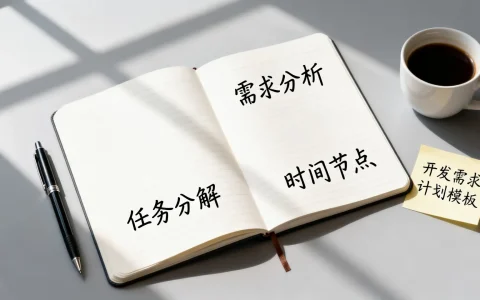 需求分析
任务分解
时间节点
开发需求
计划模板